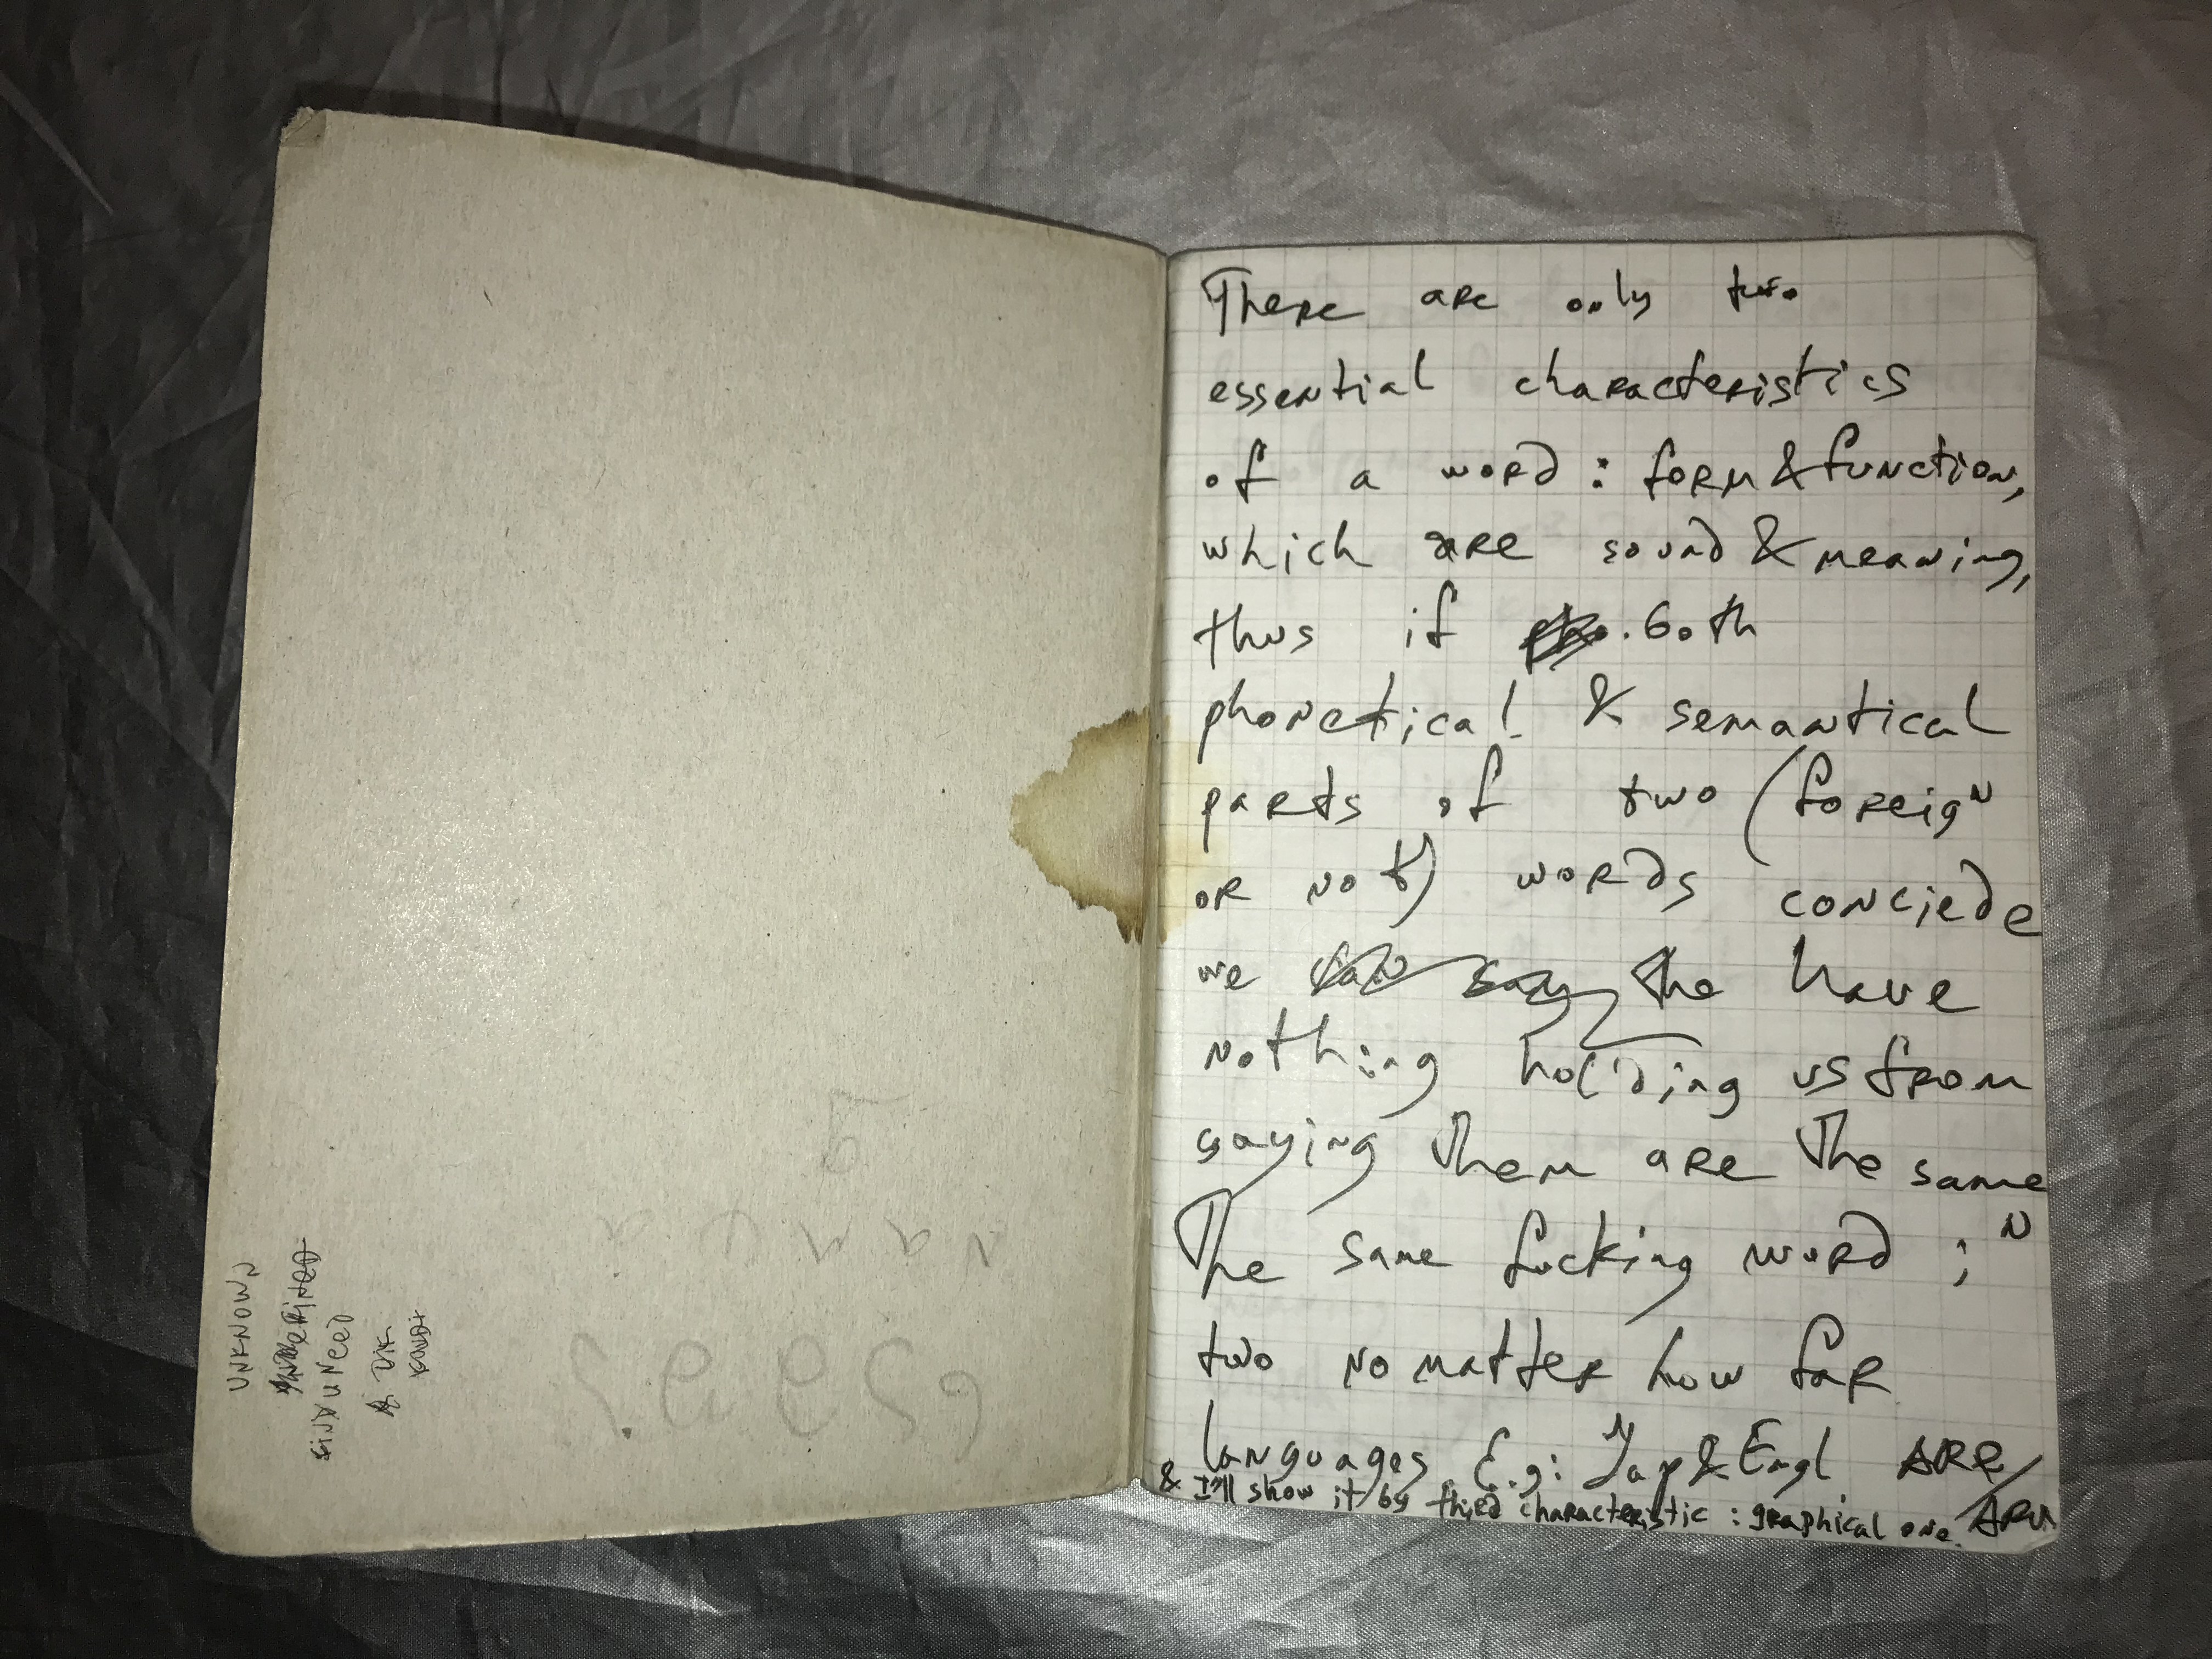 UNKNOWN
UNeeD
There are only two
essential characteristics
of a word: form & function,
which are sound & meaning,
thus if both
phonetical & semantical
parts of two (foreign
or not) words concide
we the have
nothing holding us from
saying them are the same
The same fucking word; n
two no matter how far
languages E.g: Jap & Engl ARE
& I'll show it/by third characteristic: graphical one.